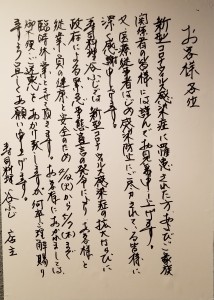 お客様各位
新型コロナウイルス感染症に罹患された方々及びご家族
関係者の皆様には謹んでお見舞い申し上げます。
又、医療従事者はじめ感染防止にご尽力されている皆様に
深く感謝申し上げます。
寿司料理 では新型コロナウイルス感染症の拡大ならびに
政府による緊急事態宣言の発令により、お客様と
従業員の健康と安全のため
臨時休業とさせて頂きます。お客様におかれましては
ご不便、ご迷惑をおかけ致しますが、何卒ご理解賜り
ますよう宜しくお願い申し上げます。
寿司料理 店主